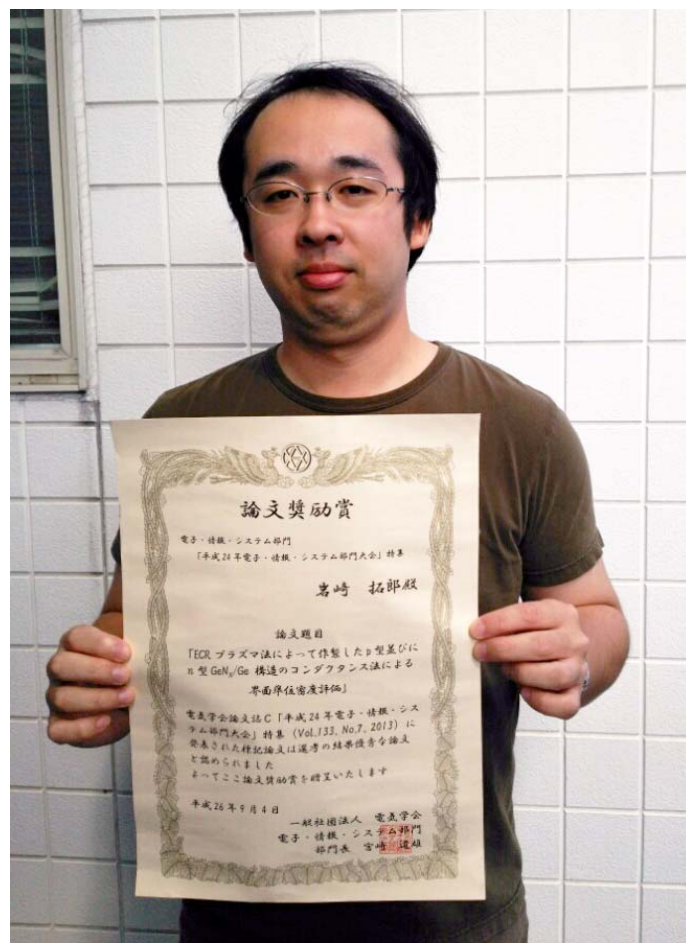 論文奨励賞
電子・情報・システム部門
「平成24年電子・情報・システム部門大会」特集
岩崎 拓郎殿
論文題目
「ECR プラズマ法によって作製したp型並びに
n型 GeNx/Ge 構造のコンダクタンス法による
界面準位密度評価」
電気学会論文誌C「平成24年電子・情報・シス
テム部門大会」特集（Vol.133, No.7, 2013）に
発表された標記論文は選考の結果優秀な論文
と認められました
よってここに論文奨励賞を贈呈いたします
平成26年9月4日
一般社団法人 電気学会
電子・情報・システム部門
部門長 宮崎 道雄